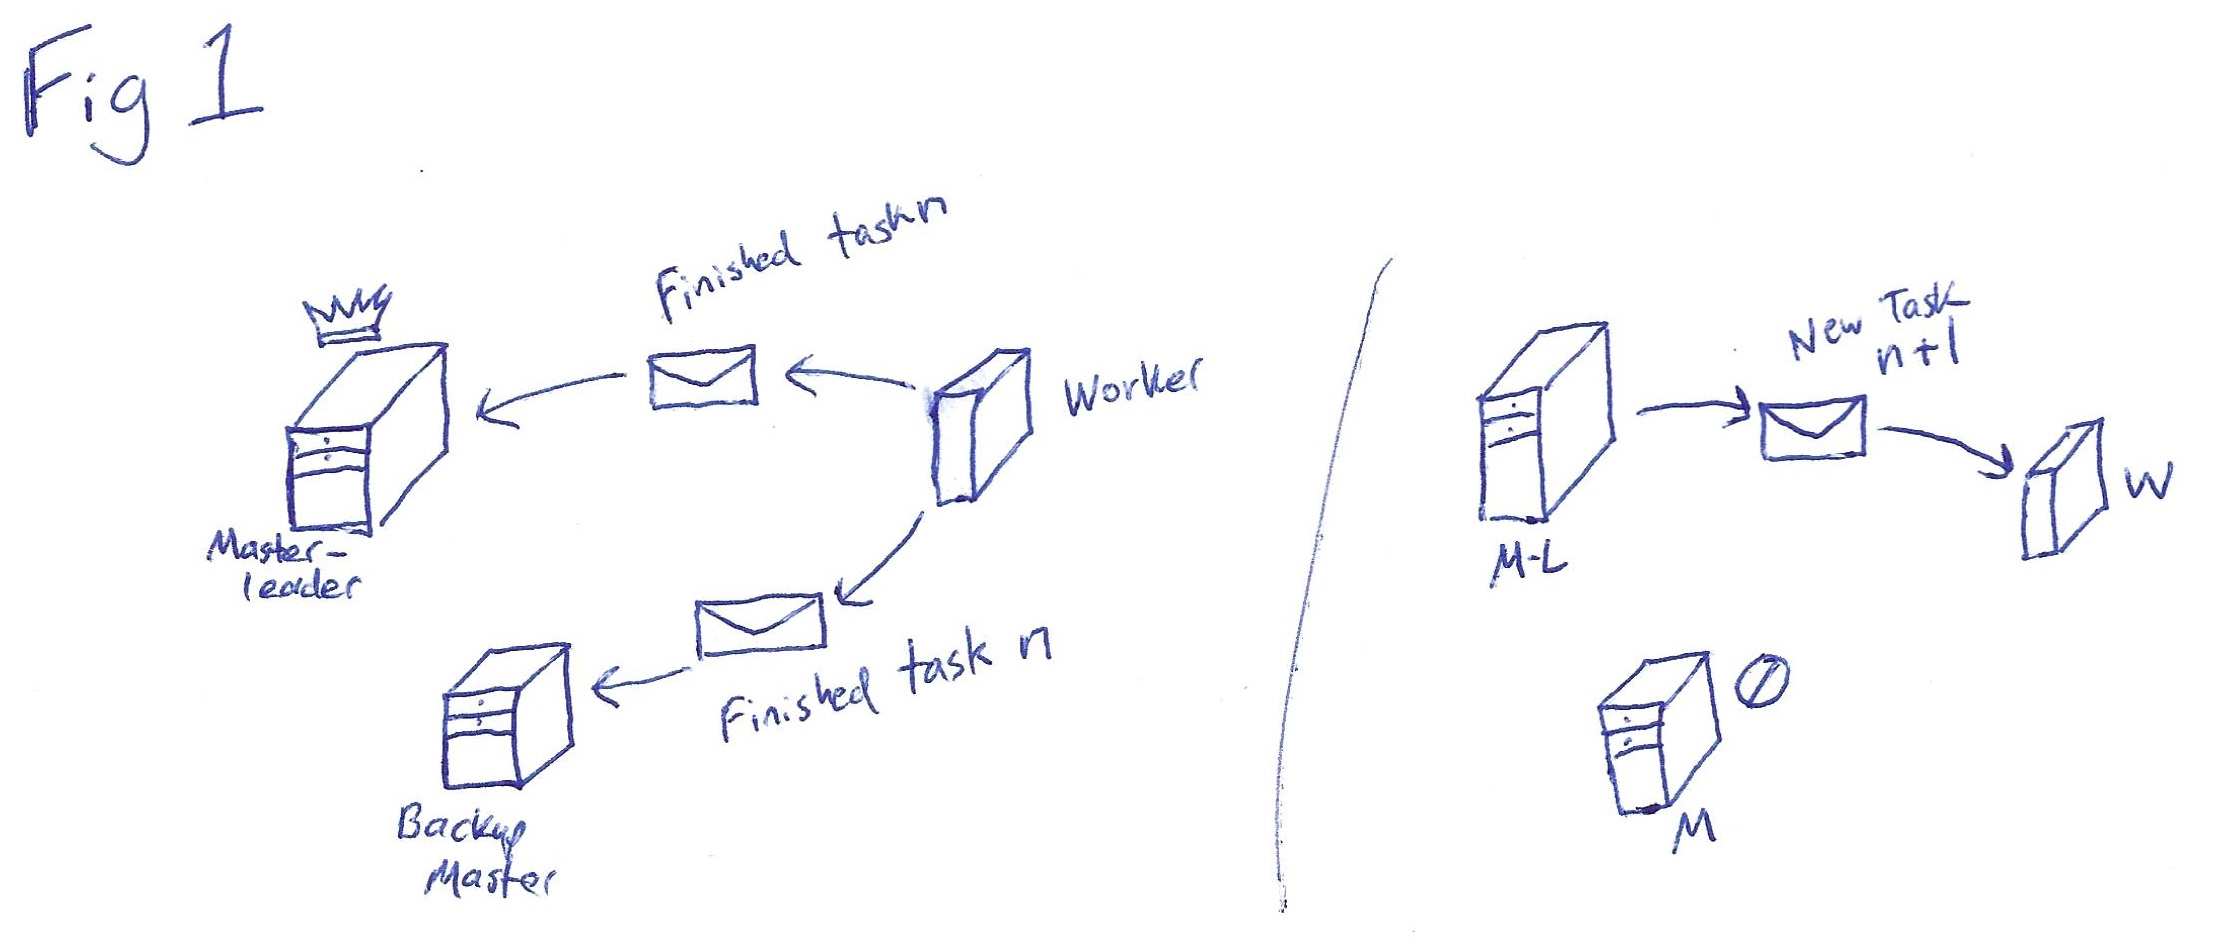 Fig 1
Finished task n
Worker
Master-
leader
Finished task n
Backup
Master
New Task
n+1
W
M-L
M